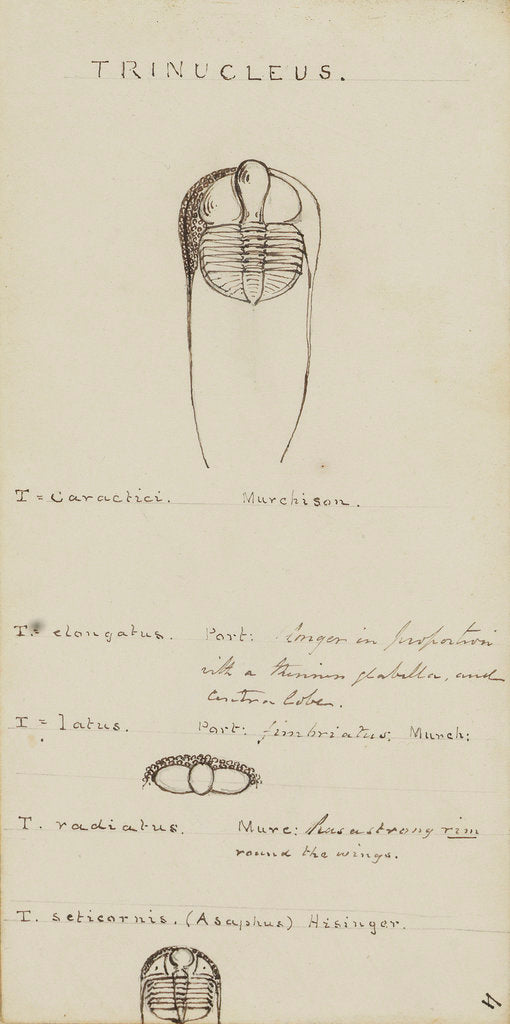 TRINUCLEUS.
T = Caractici. Murchison.
T = elongatus. Port: longer in proportion
with a thinner glabella, and
central lobe.
T = latus. Port: fimbriatus. Murch:
T. radiatus. Murc: has a strong rim
round the wings.
T. seticornis. (Asaphus) Hisinger.
4